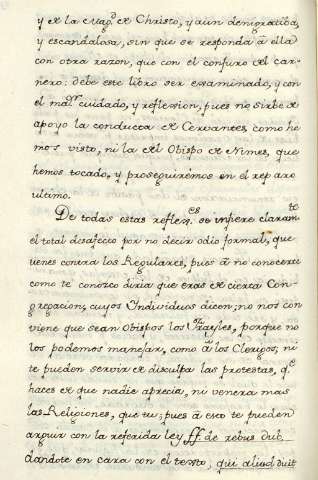 y de la Mag.d de Christo, y aun denigratiba,
y escandalosa, sin que se responda â ella
con otra razon, que con el conjuro del car-
nero: debe este libro ser examinado, y con
el mar. cuidado, y reflexion, pues no sirbe de
apoyo la conducta de Cervantes, como he
mos visto, ni la del Obispo de Nimes, que
hemos tocado, y proseguirémos en el reparo
ultimo.
De todas estas reflex.es se infiere claram.te
el total desafecto por no decir odio formal, que
tienes contra los Regulares, pues â no conocerte
como te conozco diria que eras de cierta Con-
gregacion, cuyos Individuos dicen; no nos con
viene que sean Obispos los Frayles, porque no
los podemos manejar, como â los Clerigos; ni
te pueden servir de disculpa las protestas, q.e
haces de que nadie aprecia, ni venera mas
las Religiones, que tu; pues â esto te pueden
arguir con la referida ley ff. de rebus dub.
dandote en cara con el texto, qui aliud dicit